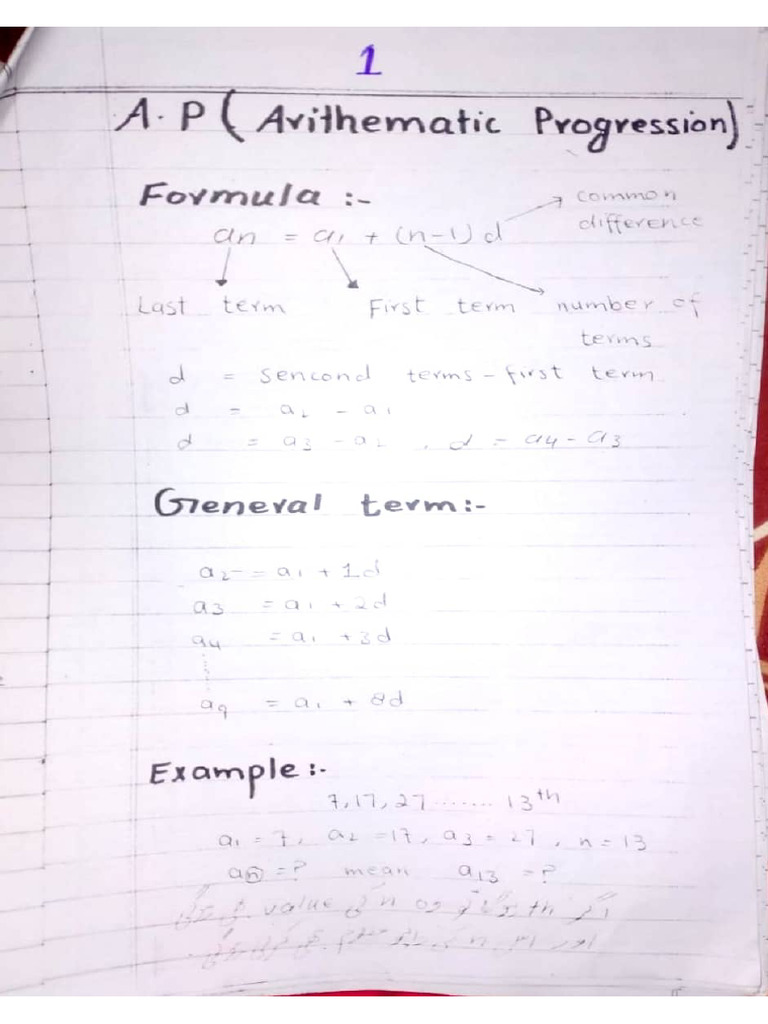 1
A.P ( Arithematic Progression)
Formula :-
an = a1 + (n-1) d
common difference
Last term First term number of terms
d = sencond terms - first term
d = a2 - a1
d = a3 - a2 , d = a4 - a3
General term:-
a2 = a1 + 1d
a3 = a1 + 2d
a4 = a1 + 3d
a9 = a1 + 8d
Example :-
7, 17, 27 ....... 13th
a1 = 7, a2 = 17, a3 = 27, n = 13
an = ? mean a13 = ?
اگر th ہوگا تو وہ n کی value ہوگی
اور اس n